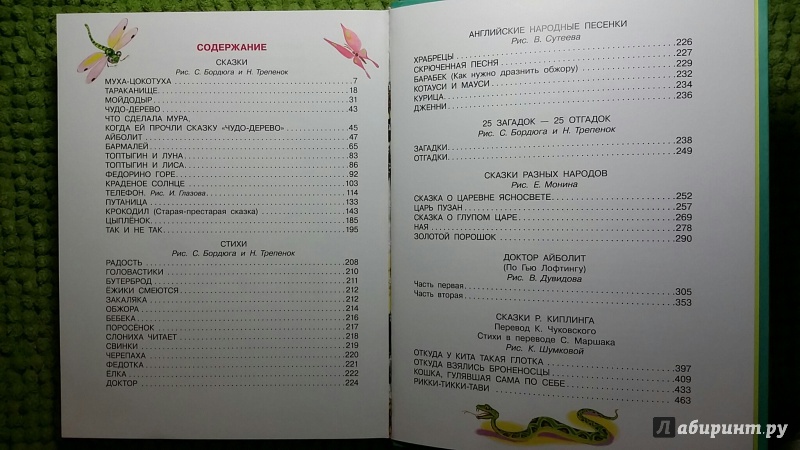 СОДЕРЖАНИЕ
СКАЗКИ
Рис. С. Бордюга и Н. Трепенок
МУХА-ЦОКОТУХА 7
ТАРАКАНИЩЕ 18
МОЙДОДЫР 31
ЧУДО-ДЕРЕВО 43
ЧТО СДЕЛАЛА МУРА,
КОГДА ЕЙ ПРОЧЛИ СКАЗКУ «ЧУДО-ДЕРЕВО» 45
АЙБОЛИТ 47
БАРМАЛЕЙ 65
ТОПТЫГИН И ЛУНА 83
ТОПТЫГИН И ЛИСА 86
ФЕДОРИНО ГОРЕ 92
КРАДЕНОЕ СОЛНЦЕ 103
ТЕЛЕФОН. Рис. И. Глазова 114
ПУТАНИЦА 133
КРОКОДИЛ (Старая-престарая сказка) 143
ЦЫПЛЁНОК 185
ТАК И НЕ ТАК 195
СТИХИ
Рис. С. Бордюга и Н. Трепенок
РАДОСТЬ 208
ГОЛОВАСТИКИ 210
БУТЕРБРОД 212
ЁЖИКИ СМЕЮТСЯ 212
ЗАКАЛЯКА 212
ОБЖОРА 214
БЕБЕКА 216
ПОРОСЁНОК 217
СЛОНИХА ЧИТАЕТ 218
СВИНКИ 219
ЧЕРЕПАХА 220
ФЕДОТКА 221
ЁЛКА 222
ДОКТОР 224
АНГЛИЙСКИЕ НАРОДНЫЕ ПЕСЕНКИ
Рис. В. Сутеева
ХРАБРЕЦЫ 226
СКРЮЧЕННАЯ ПЕСНЯ 227
БАРАБЕК (Как нужно дразнить обжору) 229
КОТАУСИ И МАУСИ 232
КУРИЦА 234
ДЖЕННИ 236
25 ЗАГАДОК — 25 ОТГАДОК
Рис. С. Бордюга и Н. Трепенок
ЗАГАДКИ 238
ОТГАДКИ 249
СКАЗКИ РАЗНЫХ НАРОДОВ
Рис. Е. Монина
СКАЗКА О ЦАРЕВНЕ ЯСНОСВЕТЕ 252
ЦАРЬ ПУЗАН 257
СКАЗКА О ГЛУПОМ ЦАРЕ 269
НАЯ 278
ЗОЛОТОЙ ПОРОШОК 290
ДОКТОР АЙБОЛИТ
(По Гью Лофтингу)
Рис. В. Дувидова
Часть первая 305
Часть вторая 353
СКАЗКИ Р. КИПЛИНГА
Перевод К. Чуковского
Стихи в переводе С. Маршака
Рис. К. Шумковой
ОТКУДА У КИТА ТАКАЯ ГЛОТКА 397
ОТКУДА ВЗЯЛИСЬ БРОНЕНОСЦЫ 409
КОШКА, ГУЛЯВШАЯ САМА ПО СЕБЕ 433
РИККИ-ТИККИ-ТАВИ 463
Лабиринт.ру